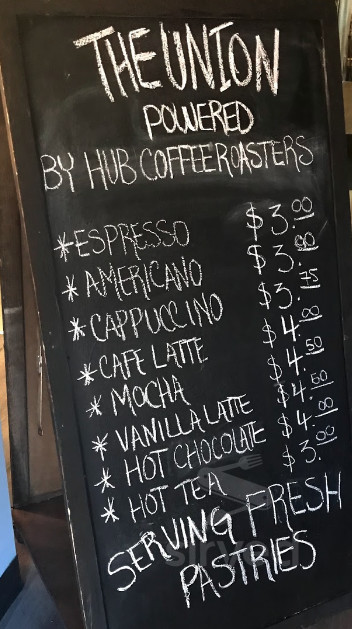 THE UNION
POWERED
BY HUB COFFEE ROASTERS
* ESPRESSO $3.00
* AMERICANO $3.00
* CAPPUCCINO $3.75
* CAFE LATTE $4.00
* MOCHA $4.50
* VANILLA LATTE $4.50
* HOT CHOCOLATE $4.00
* HOT TEA $3.00
SERVING FRESH
PASTRIES